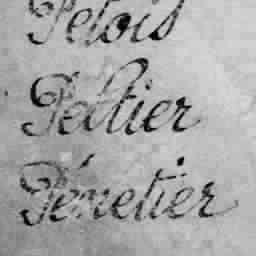 Petois
Peltier
Pénetier